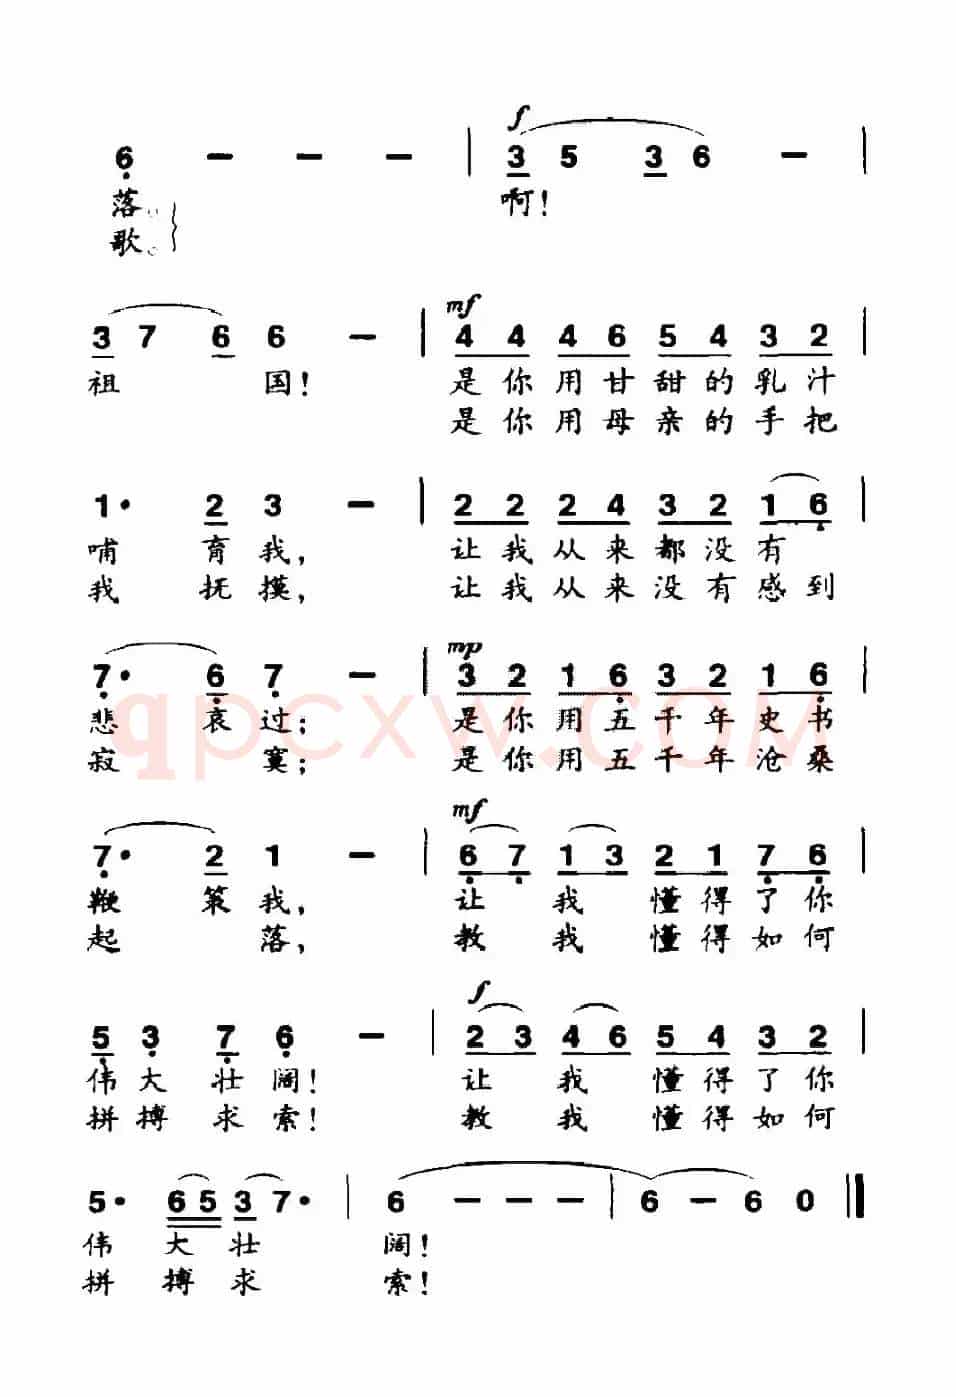 f
6 - - - | 3 5 3 6 - |
落。 啊！
歌。
mf
3 7 6 6 - | 4 4 4 6 5 4 3 2 |
祖 国！ 是你用甘甜的乳汁
是你用母亲的手把
1· 2 3 - | 2 2 2 4 3 2 1 6 |
哺 育我， 让我从来都没有
我 抚摸， 让我从来没有感到
mp
7· 6 7 - | 3 2 1 6 3 2 1 6 |
悲 哀过； 是你用五千年史书
寂 寞； 是你用五千年沧桑
qpcxw.com
mf
7· 2 1 - | 6 7 1 3 2 1 7 6 |
鞭 策我， 让 我 懂得了你
起 落， 教 我 懂得如何
f
5 3 7 6 - | 2 3 4 6 5 4 3 2 |
伟大 壮阔！ 让 我 懂得了你
拼搏 求索！ 教 我 懂得如何
5· 6 5 3 7· | 6 - - - | 6 - 6 0 ‖
伟 大 壮 阔！
拼 搏 求 索！